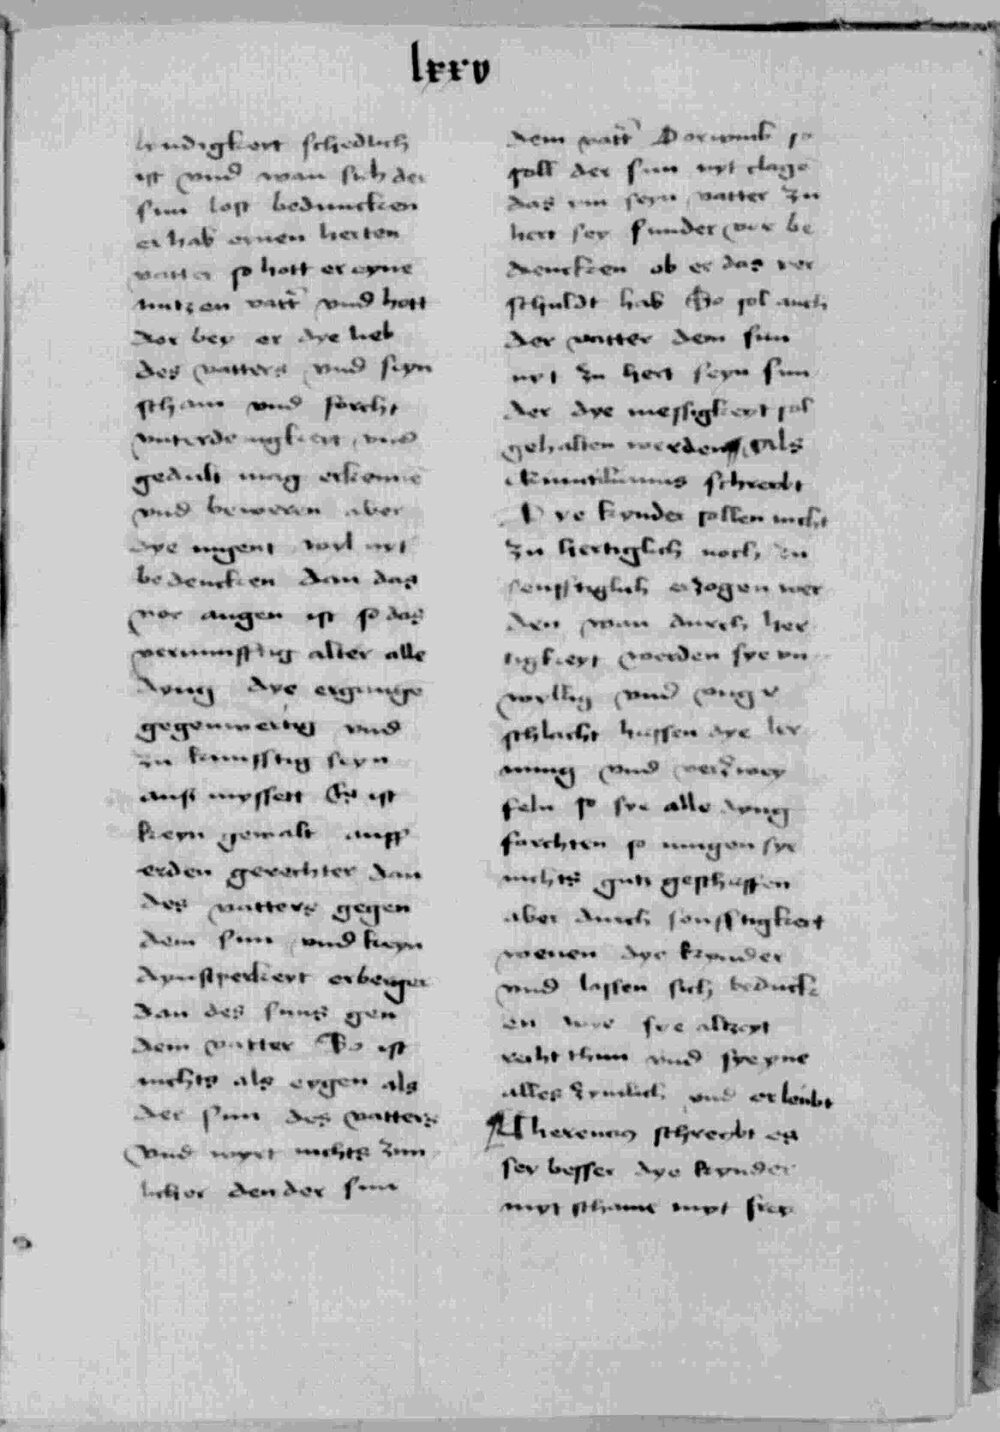 lxxv
lyndigkeit schedlich
ist vnd wan sich der
sun lost beduncken
er hab eynen herten
vatter so hott er eyne
nutzen vatt̄ vnd hott
dor bey er dye lieb
des vatters vnd seyn
scham vnd forcht
vnterdenigkeit vnd
gedult mag erkenne
vnd beweren aber
dye iugent wyl nyt
bedencken dan das
vor augen ist so das
vernunfftig alter alle
dyng dye ergangē
gegenwertig vnd
zu kunfftig seyn
auß mysset Es ist
keyn gewalt auff
erden gerechter dan
des vatters gegen
dem sun vnd keyn
dynstperkeyt erberger
dan des suns gen
dem vatter So ist
nichts als eygen als
der sun des vatters
vnd wyrt nichts zim
licher den der sun
dem vatt̄ Dorumb so
soll der sun nyt clagē
das im seyn vatter zu
hert sey sunder vor be
dencken ob er das ver
schuldt hab So sol auch
der vatter dem sun
nyt zu hert seyn sun
der dye messigkeyt sol
gehalten werden als
Quintilianus schreybt
Dye kynder sollen nicht
zu hertiglich noch zu
senfftiglich erzogen wer
den wan durch her
tigkeyt werden sye vn
wyllig vnd vnge
schlacht hassen dye ler
nung vnd verzwey
feln so sye alle dyng
forchten so mugen sye
nichts guts geschaffen
aber durch senfftigkeit
wenen dye kynder
vnd lassen sich beduck
en wye sye altzeyt
recht thun vnd sye yne
alles zymlich vnd erleubt
Therencius schreybt es
sey besser dye kynder
myt schame myt frey